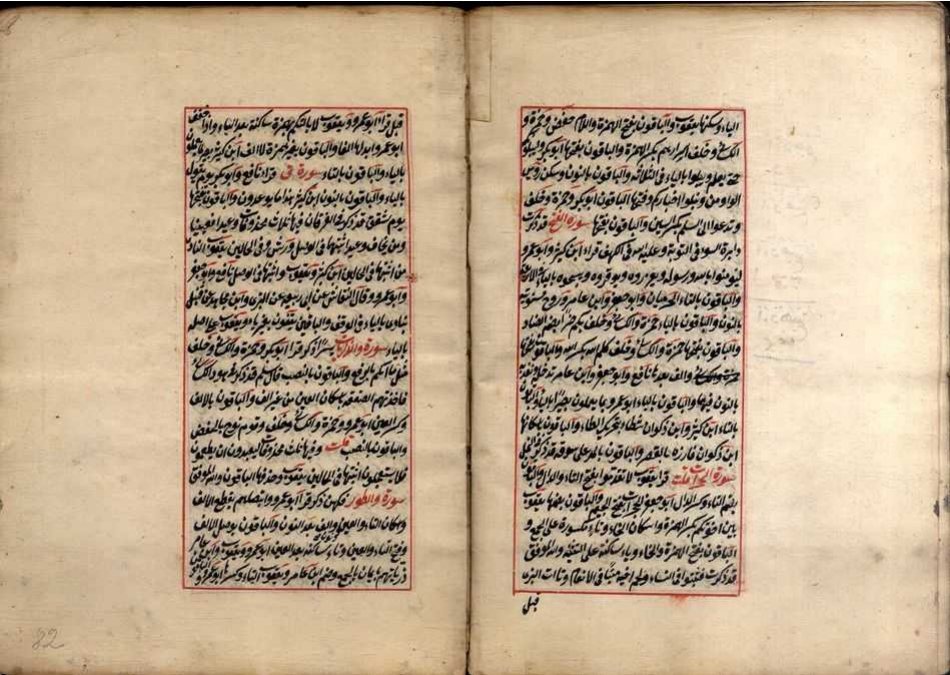 الياء وسكنها يعقوب والباقون بفتح الهمزة واللام حفص وحمزة و
الكسائي وخلف اسرارهم بكسر الهمزة والباقون بفتحها ابوبكر وليبلونكم
حتى يعلم ويبلوا بالياء في الثلاثة والباقون بالنون وسكن رويس
الواو من ونبلوا اخباركم وفتحها الباقون ابوبكر وحمزة وخلف
وتدعوا الى السلم بكسر السين والباقون بفتحها سورة الفتح قد ذكرت
دايرة السوء في التوبة وعليه الله في الكهف قراء ابن كثير وابوعمرو
ليؤمنوا بالله ورسوله ويعزروه ويوقروه ويسبحوه بالياء
والباقون بالتاء الحرميان وابوجعفر وابن عامر وروح فسنؤتيه
بالنون والباقون بالياء حمزة والكسائي وخلف بكم ضرا بضم الضاد
والباقون بفتحها حمزة والكسائي وخلف كلم الله بكسر اللام والباقون بفتحها
والف بعدها نافع وابوجعفر وابن عامر ندخله ونعذبه
بالنون فيهما والباقون بالياء ابوعمرو بما يعملون بصيرا
بالتاء ابن كثير وابن ذكوان شطأه بتحريك الطاء والباقون باسكانها
ابن ذكوان فازره بالقصر والباقون بالمد على سوقه قد ذكر في النمل
سورة الحجرات قرا يعقوب لا تقدموا بفتح التاء والدال والباقون
بضم التاء وكسر الدال ابوجعفر الحجرات بفتح الجيم والباقون بضمها يعقوب
بين اخوتكم بكسر الهمزة واسكان الخاء وتاء مكسورة على الجمع و
الباقون بفتح الهمزة والخاء وياء ساكنة على التثنية والله الموفق
قد ذكرت فتثبتوا في النساء ولحم اخيه ميتا في الانعام وتاءات البزي
قبل
قبل قرا ابوعمرو ويعقوب لا يالتكم بهمزة ساكنة بعد الياء واذا خفف
ابوعمرو ابدلها الفا والباقون بغير همزة ولا الف ابن كثير بما يعملون
بالياء والباقون بالتاء سورة ق قرا نافع وابوبكر يوم يقول
بالياء والباقون بالنون ابن كثير هذا ما يوعدون والباقون
يوم تشقق قد ذكر في الفرقان فيها ثلاث محذوفات وعيد افعيينا
ومن يخاف وعيد اثبتها في الوصل ورش وفي الحالين يعقوب المناد
من اثبتها في الحالين ابن كثير ويعقوب واثبتها في الوصل نافع وابوجعفر
وابوعمرو وقال النقاش عن ابي ربيعة عن البزي وابن مجاهد عن قنبل
ينادي بالياء في الوقف والباقون يقفون بغير ياء ويعقوب على اصله
بالياء سورة والذاريات يسرا ذكر قرا ابوبكر وحمزة والكسائي وخلف
مثل ما انكم بالرفع والباقون بالنصب قال سلم قد ذكر في هود الكسائي
فاخذتهم الصعقة باسكان العين من غير الف والباقون بالالف
وكسر العين ابوعمرو وحمزة والكسائي وخلف وقوم نوح بالخفض
والباقون بالنصب قلت وفيها ثلاث محذوفات ليعبدون ان يطعمون
فلا يستعجلون اثبتها في الحالين يعقوب وحذفها الباقون والله الموفق
سورة والطور فكهين ذكر قرا ابوعمرو واتبعناهم بقطع الالف
واسكان التاء والعين والف بعد النون والباقون بوصل الالف
وفتح التاء والعين وتاء ساكنة بعد العين ابوعمرو ويعقوب وابن عامر
ذرياتهم بايمان بالجمع وضم ابن عامر ويعقوب التاء وكسرها ابوعمرو
82